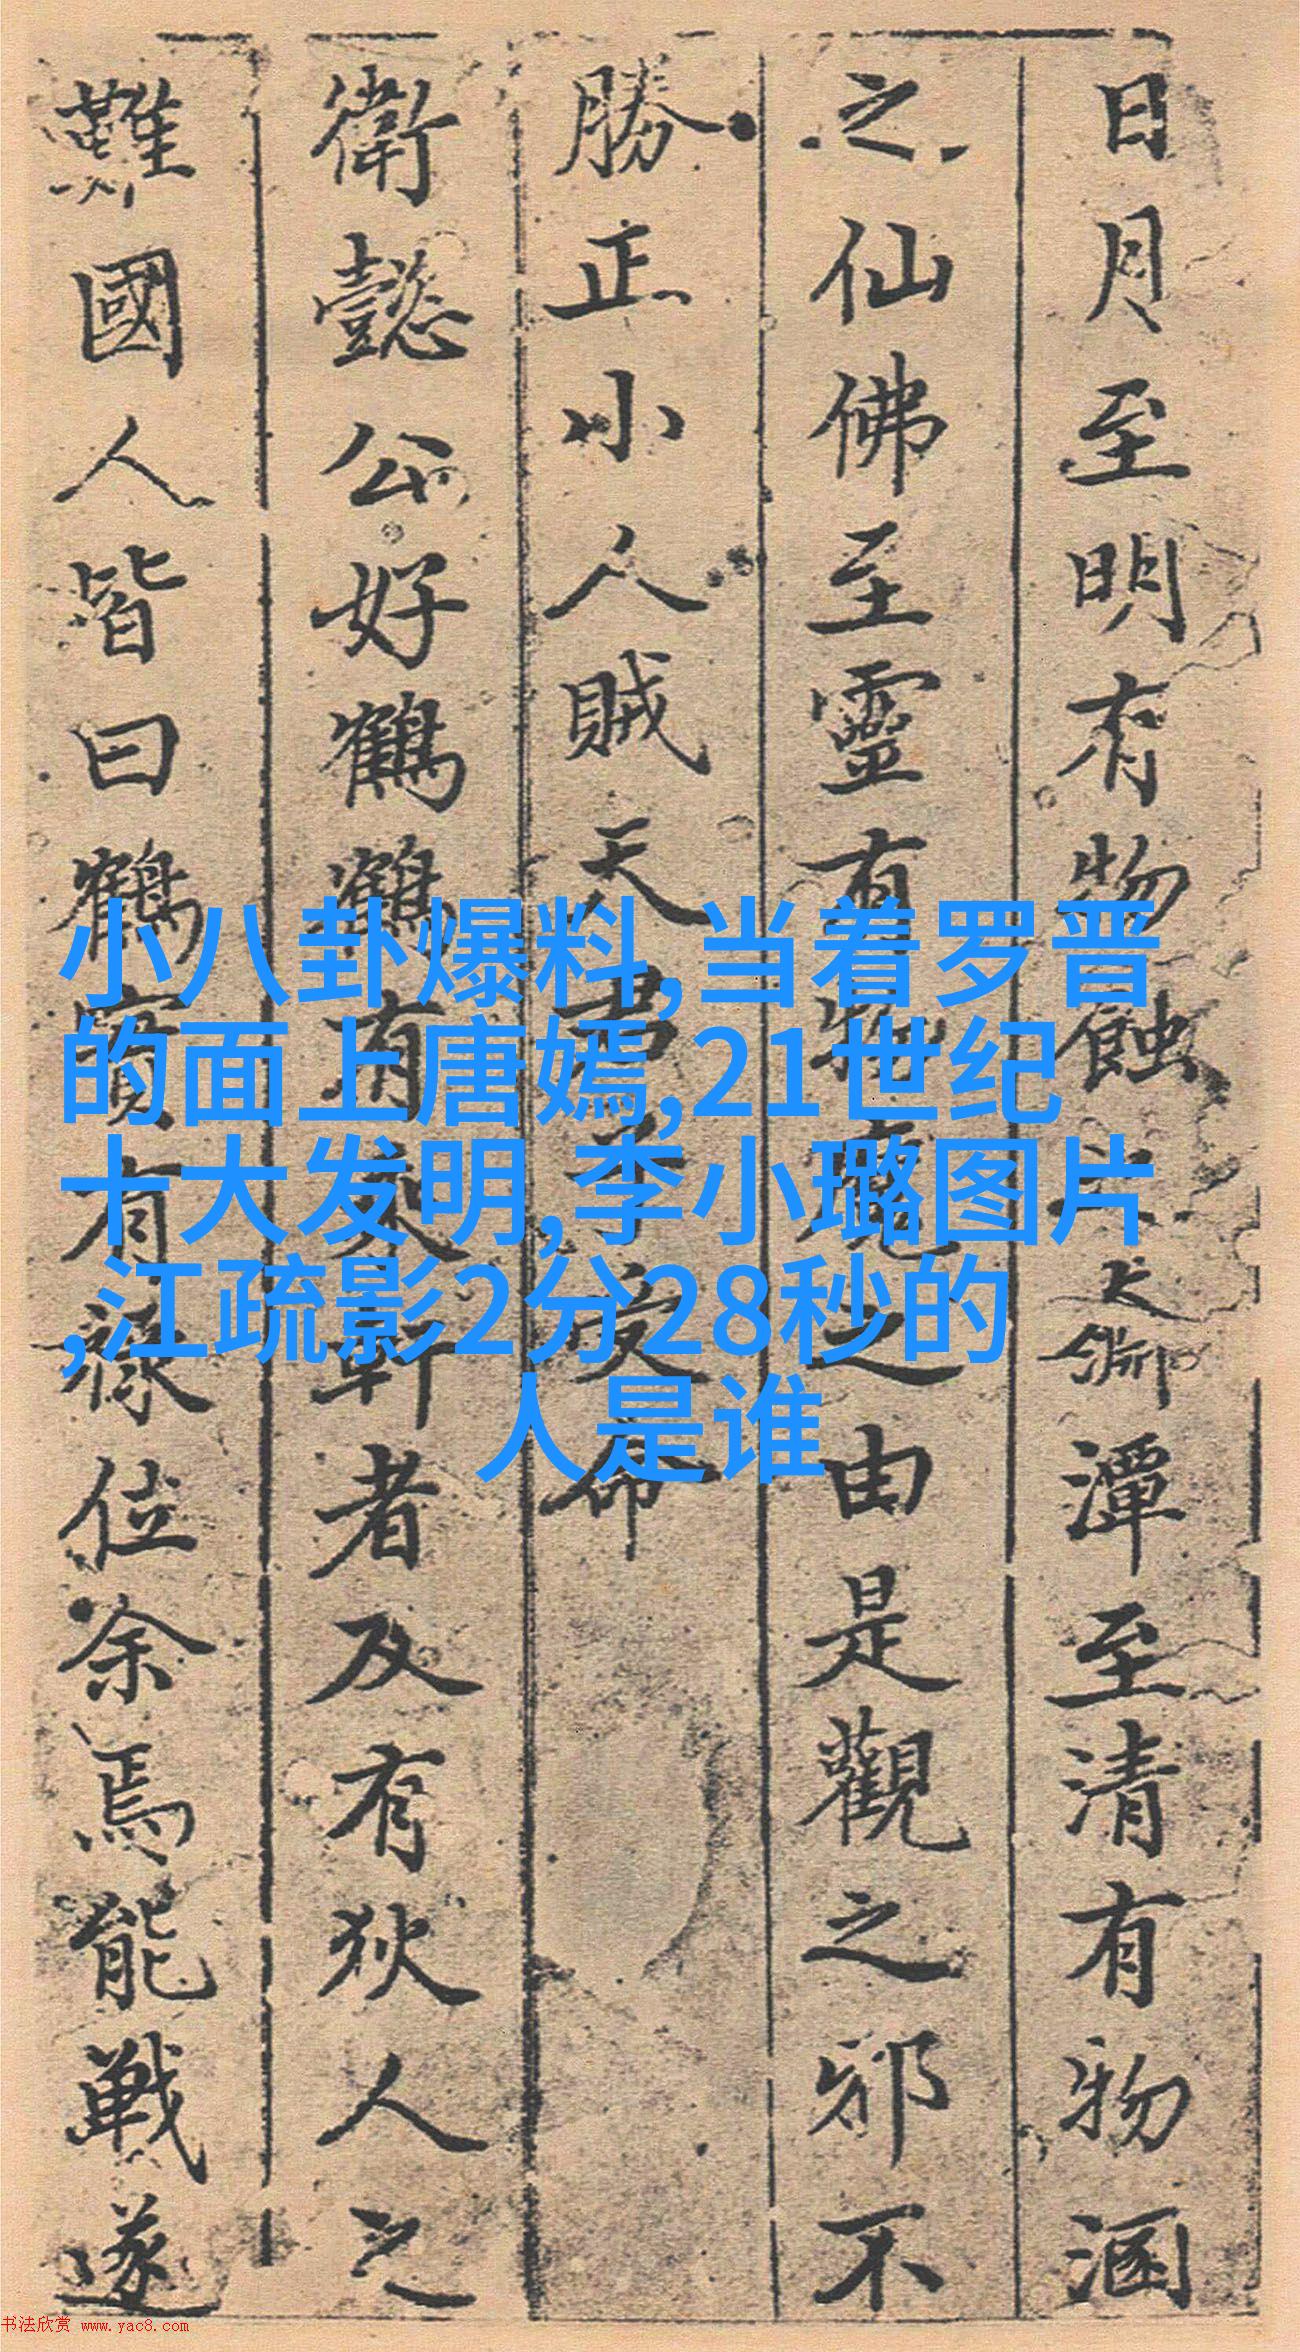 日月至明有物蝕之潭至清有物涵
之仙佛至靈有物魔之由是觀之邪不
勝正小人賊天君子受命
衛懿公好鶴鶴有乘軒者及有狄人之
難國人皆曰鶴實有祿位余焉能戰遂
小八卦爆料,当着罗晋
的面上唐嫣,21世纪
十大发明,李小璐图片
,江疏影2分28秒的
人是谁
书法欣赏 www.yac8.com